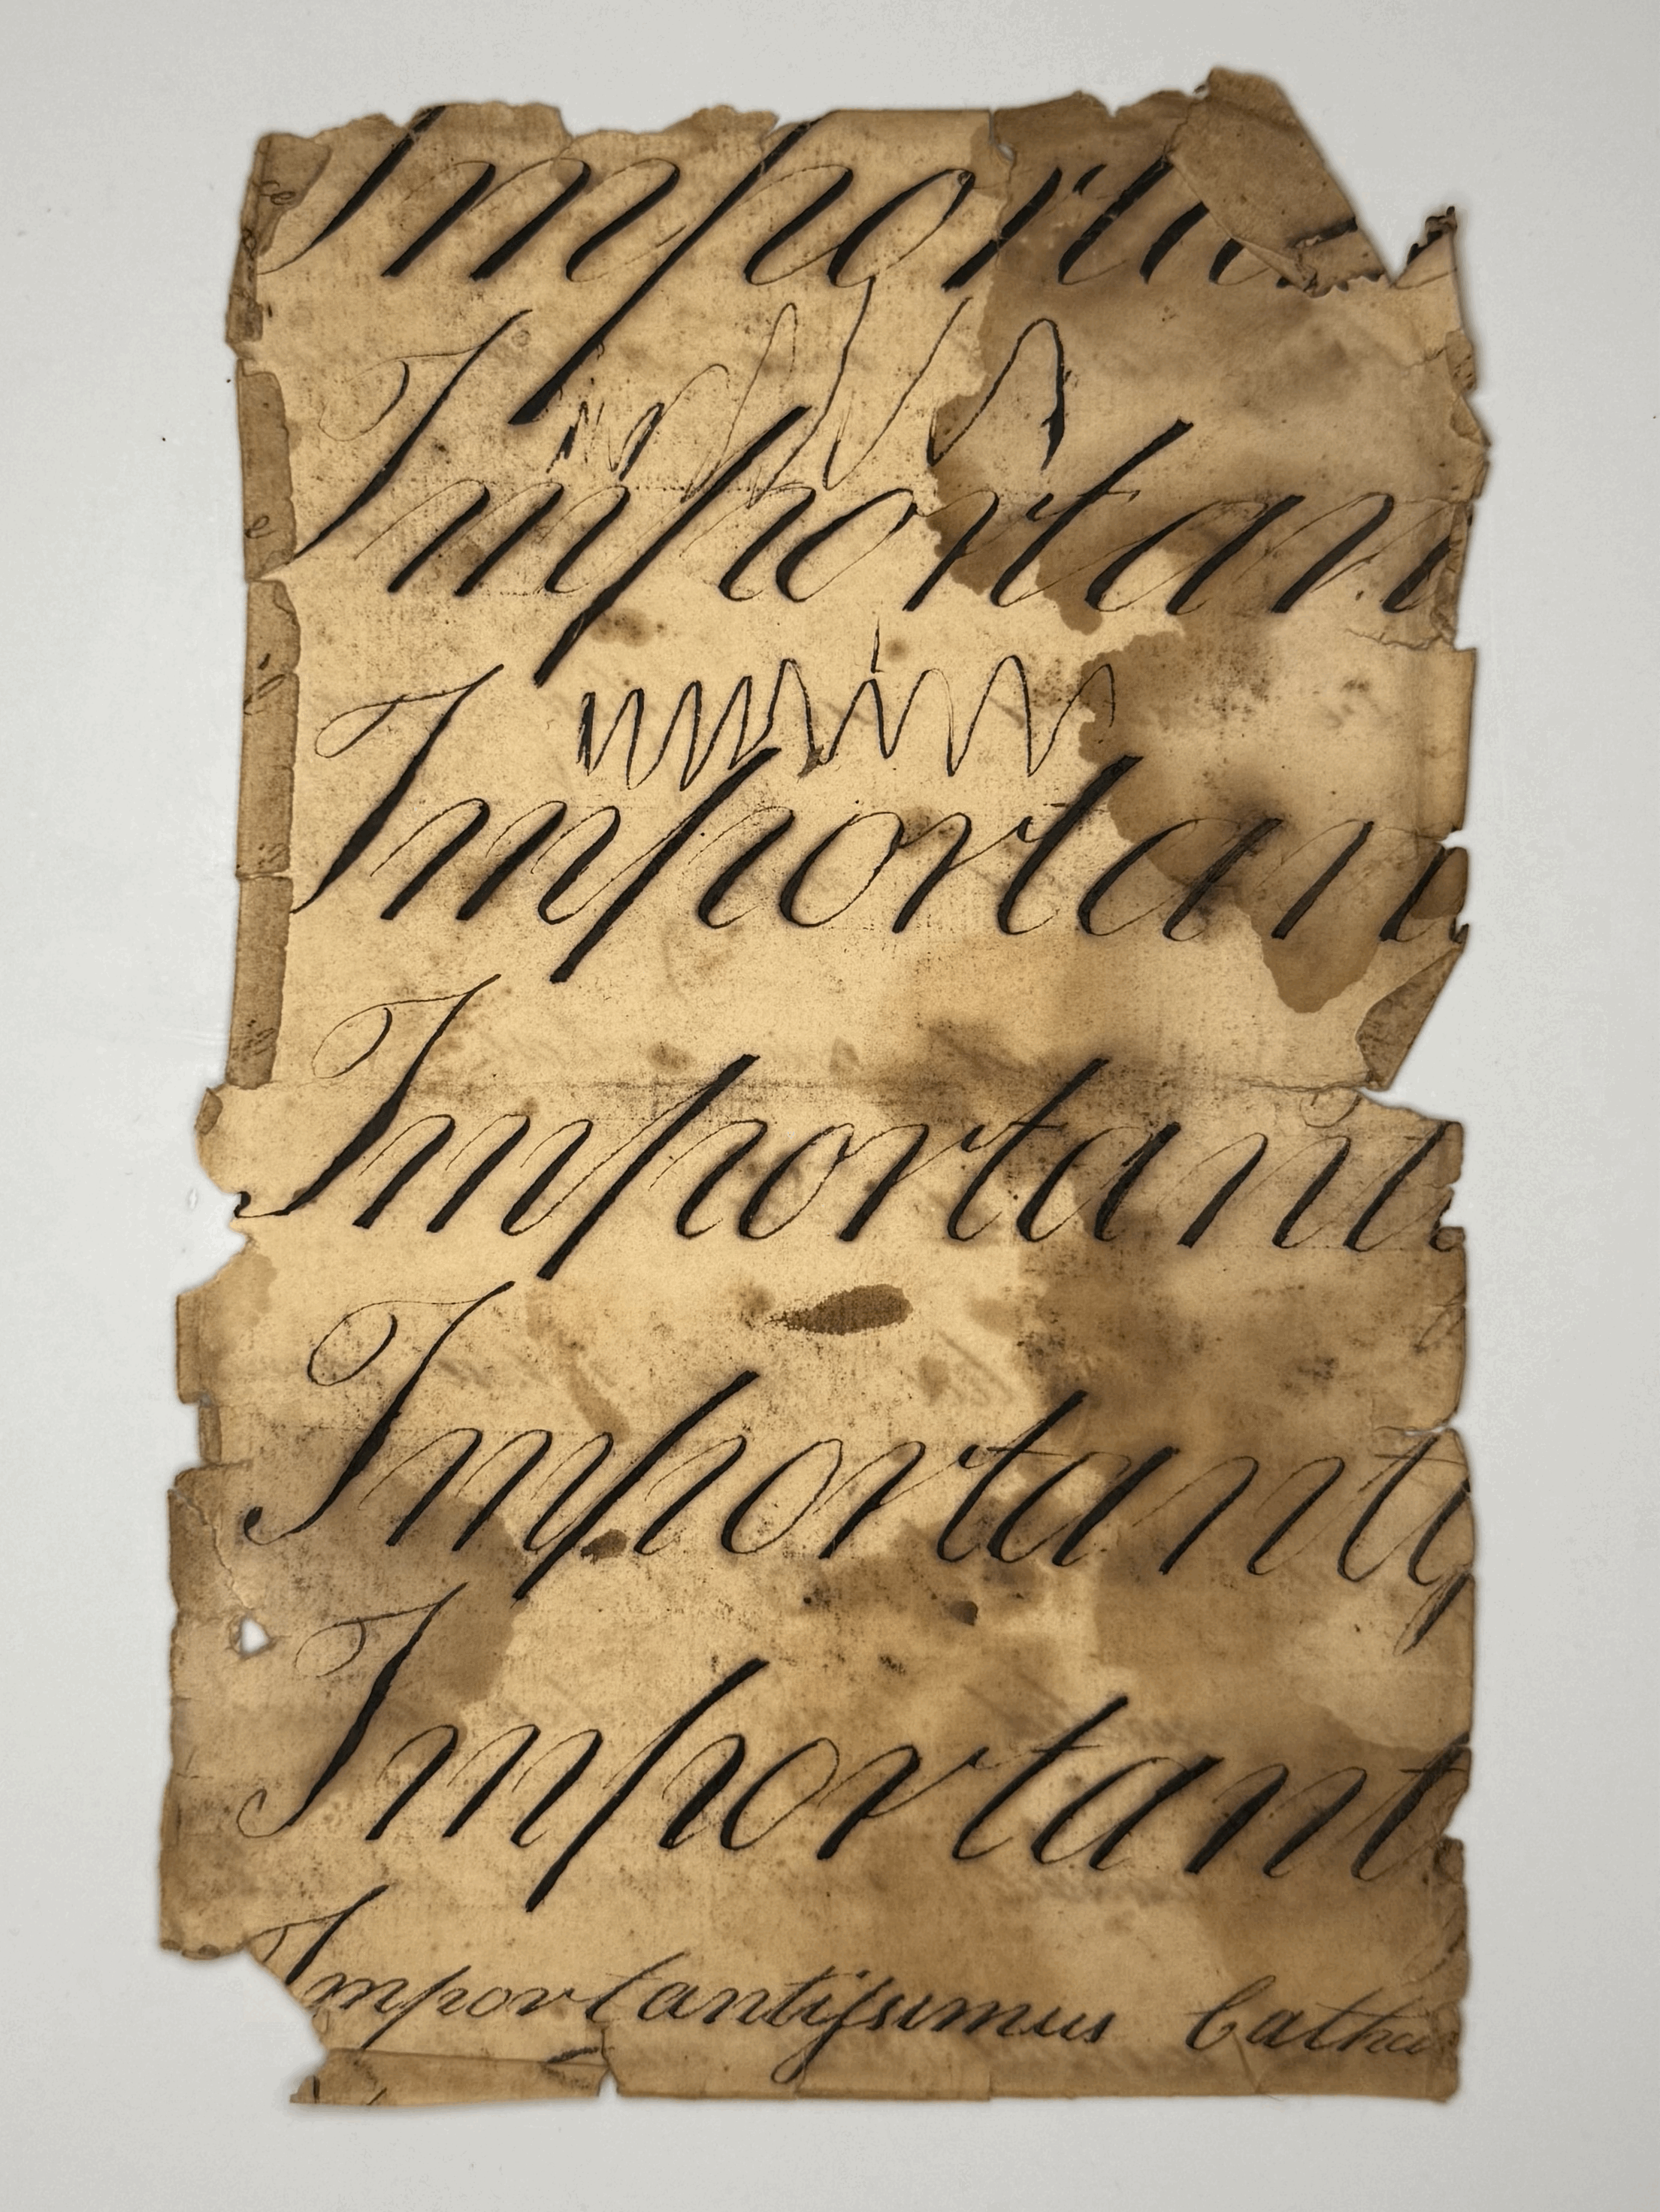 Importa
Importan
Importan
Importants
Importantiſ
Importants
Importantiſsimus Cathu